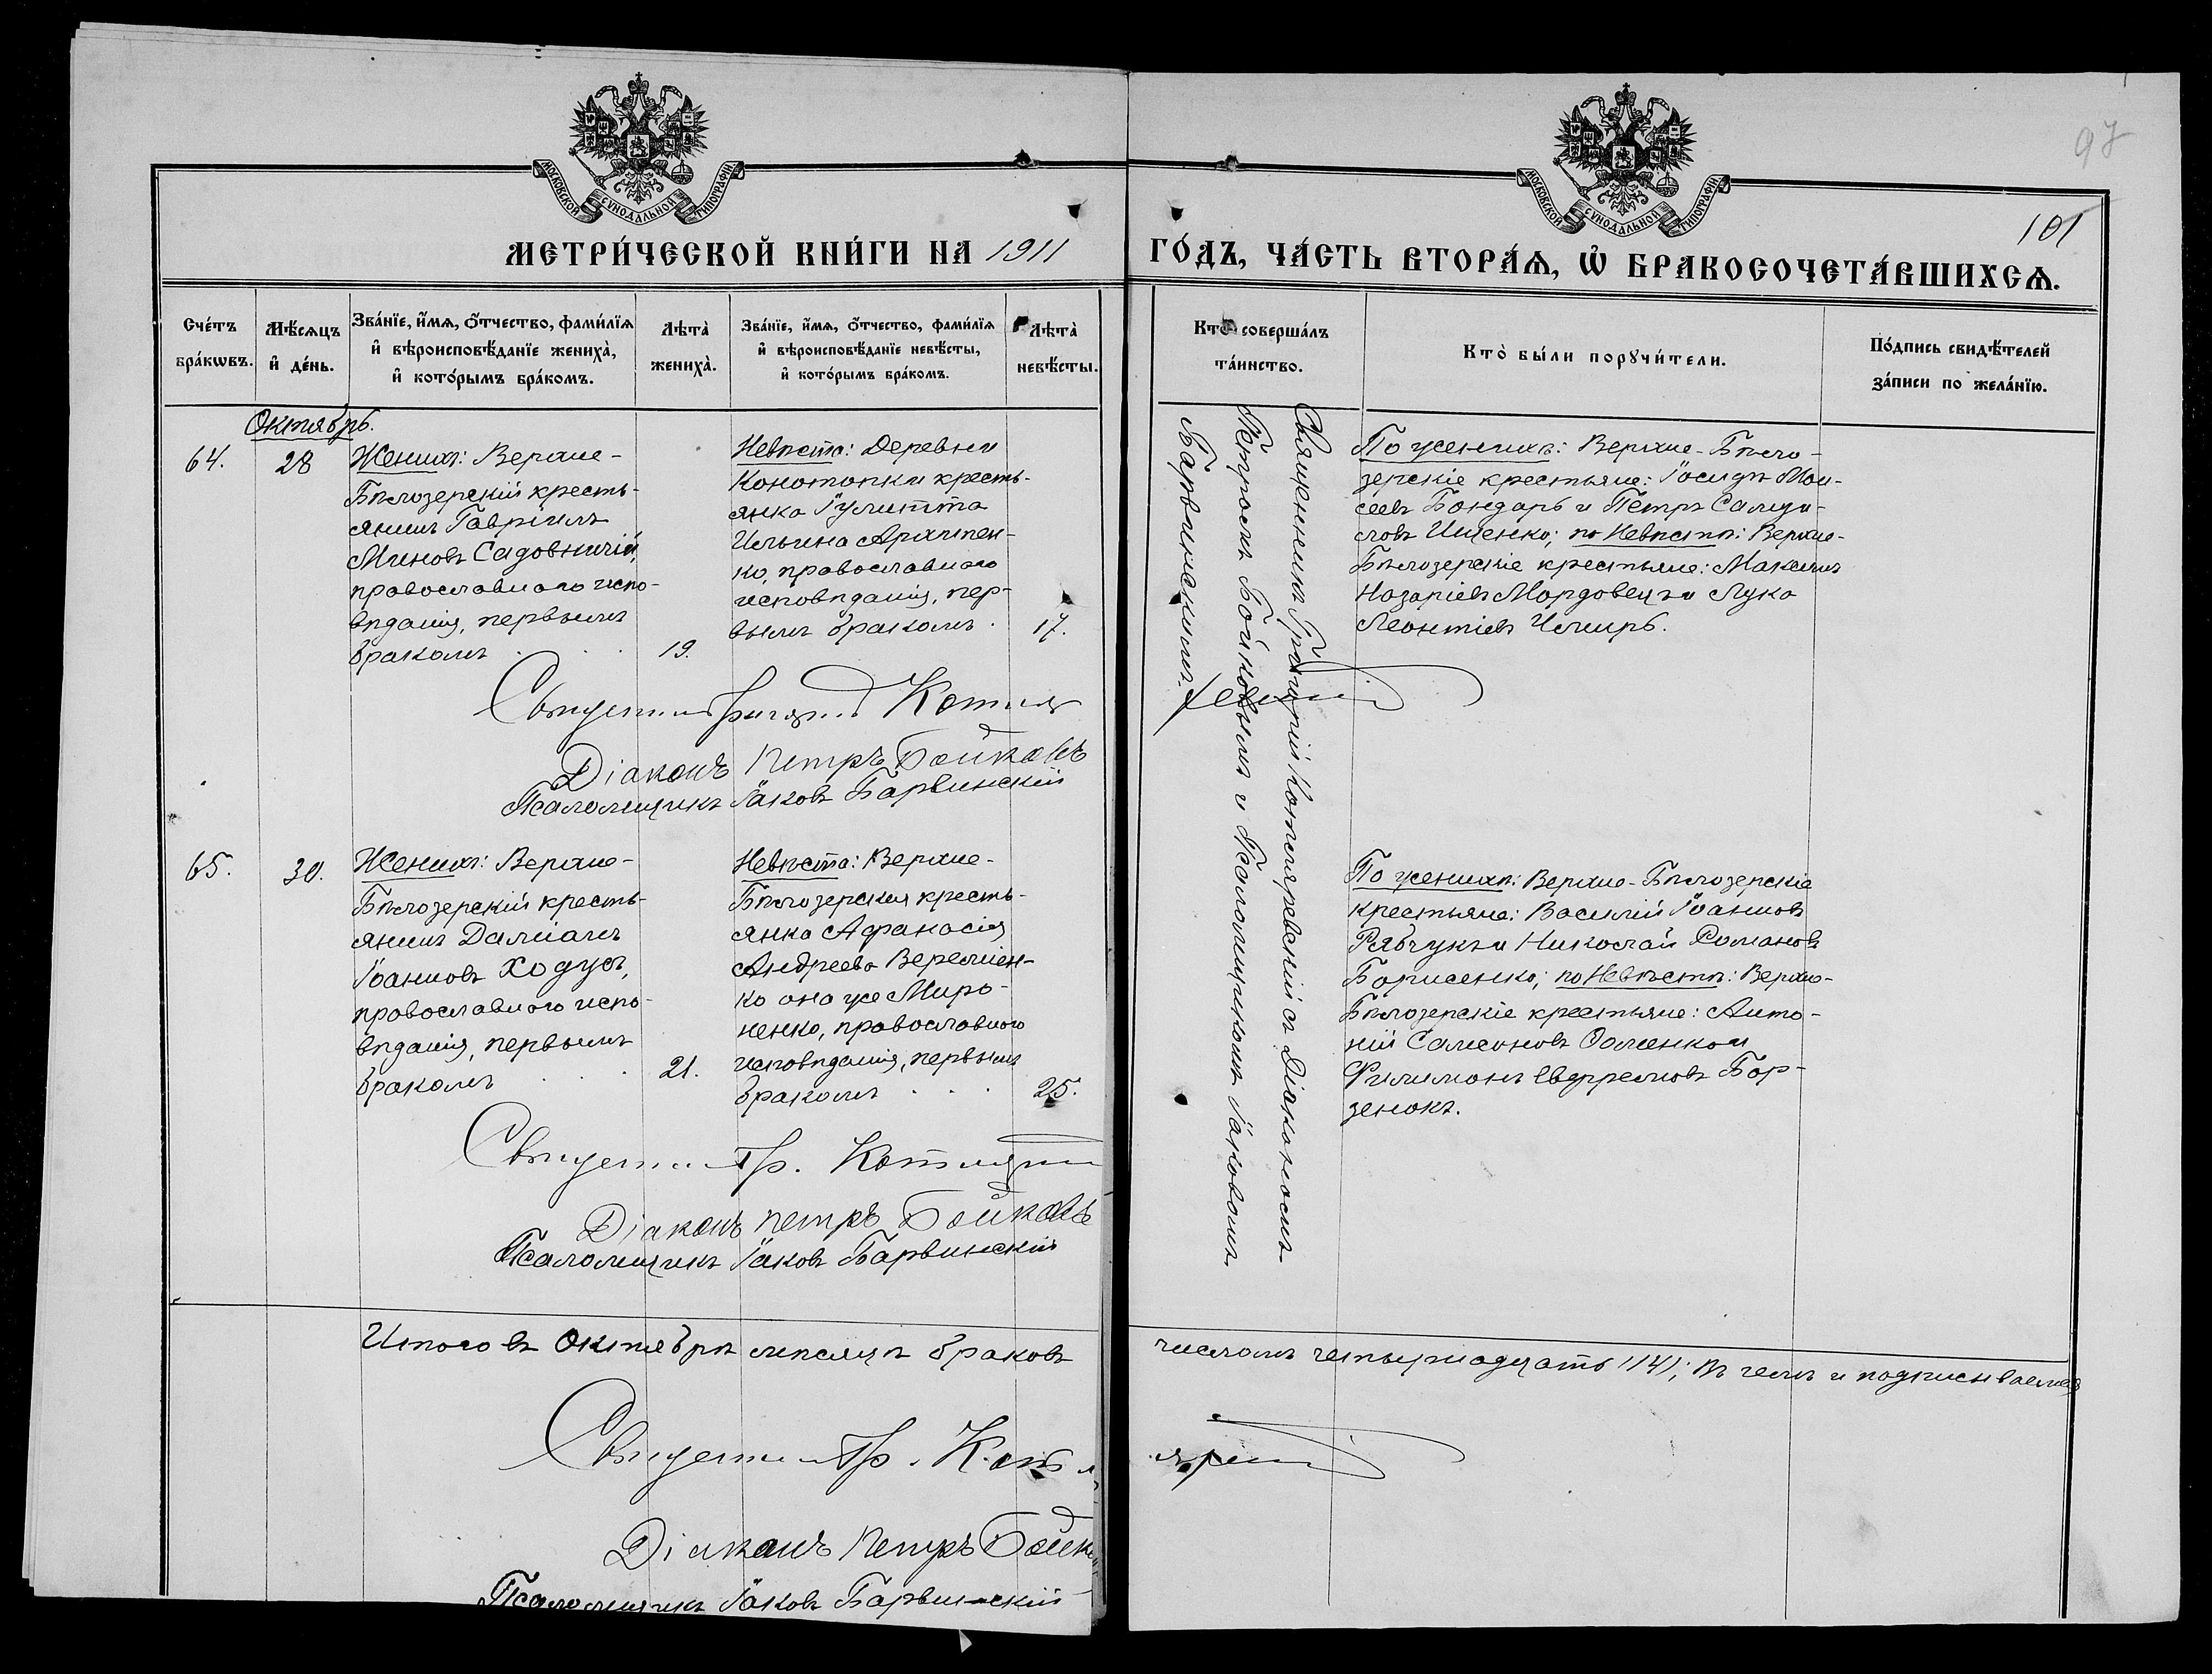 МОСКОВСКОЙ СѴНОДАЛЬНОЙ ТИПОГРАФІИ.
МОСКОВСКОЙ СѴНОДАЛЬНОЙ ТИПОГРАФІИ.
97
101
МЕТРИ́ЧЕСКОЙ КНИ́ГИ НА 1911 ГО́ДЪ, ЧА́СТЬ ВТОРА́Ѧ, Ѡ҆ БРАКОСОЧЕТА́ВШИХСѦ.
Сче́тъ бра́кѡвъ.
Мѣ́сяцъ и҆ де́нь.
Зва́нїе, и҆́мѧ, ѻ҆́тчество, фами́лїѧ
и҆ вѣроисповѣ́данїе жениха̀,
и҆ кото́рымъ бра́комъ.
Лѣта̀ жениха̀.
Зва́нїе, и҆́мѧ, ѻ҆́тчество, фами́лїѧ
и҆ вѣроисповѣ́данїе невѣ́сты,
и҆ кото́рымъ бра́комъ.
Лѣта̀ невѣ́сты.
Кто̀ соверша́лъ та́инство.
Кто̀ бы́ли порꙋчи́тели.
По́дпись свидѣ́телей
за́писи по жела́нїю.
Октябрь.
64.
28
Женихъ: Верхне-
Бѣлозерскій кресть-
янинъ Гавріилъ
Миновъ Садовничій,
православнаго испо-
вѣданія, первымъ
бракомъ . . .
19.
Невѣста: Деревни
Конотопки кресть-
янка Іулитта
Ильина Архипен-
ко, православнаго
исповѣданія, пер-
вымъ бракомъ.
17.
Священникъ Григорій Котляревскій съ Діакономъ
Петромъ Бойковымъ и Псаломщикомъ Іаковомъ
Барвинскимъ.
По женихѣ: Верхне-Бѣло-
зерскіе крестьяне: Іосифъ Мои-
сеевъ Бондарь и Петръ Самуи-
ловъ Ищенко; по Невѣстѣ: Верхне-
Бѣлозерскіе крестьяне: Максимъ
Назаріевъ Мордовецъ и Лука
Леонтіевъ Чмиръ.
Священникъ Григорій Котляревскій
Діаконъ Петръ Бойковъ
Псаломщикъ Іаковъ Барвинскій
65.
30.
Женихъ: Верхне-
Бѣлозерскій кресть-
янинъ Даміанъ
Іоанновъ Ходусъ,
православнаго испо-
вѣданія, первымъ
бракомъ . . .
21.
Невѣста: Верхне-
Бѣлозерская кресть-
янка Афанасія
Андреева Веремiен-
ко она же Миро-
ненко, православнаго
исповѣданія, первымъ
бракомъ . . .
25.
По женихѣ: Верхне-Бѣлозерскіе
крестьяне: Василій Іоанновъ
Рябчукъ и Николай Романовъ
Борисенко; по Невѣстѣ: Верхне-
Бѣлозерскіе крестьяне: Анто-
ній Самсоновъ Оменко и
Филимонъ Евфремовъ Бор-
зенокъ.
Священникъ Гр. Котляревскій
Діаконъ Петръ Бойковъ
Псаломщикъ Іаковъ Барвинскій
Итого въ Октябрѣ мѣсяцѣ браковъ числомъ четырнадцать (14); въ чемъ и подписываемся
Священникъ Гр. Котляревскій
Діаконъ Петръ Бойко
Псаломщикъ Іаковъ Барвинскій